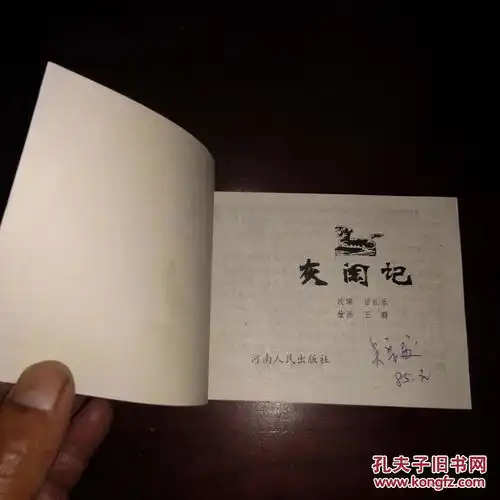 灰阑记
改编 甘礼乐
绘画 王辉
河南人民出版社
85.元
孔夫子旧书网
www.kongfz.com